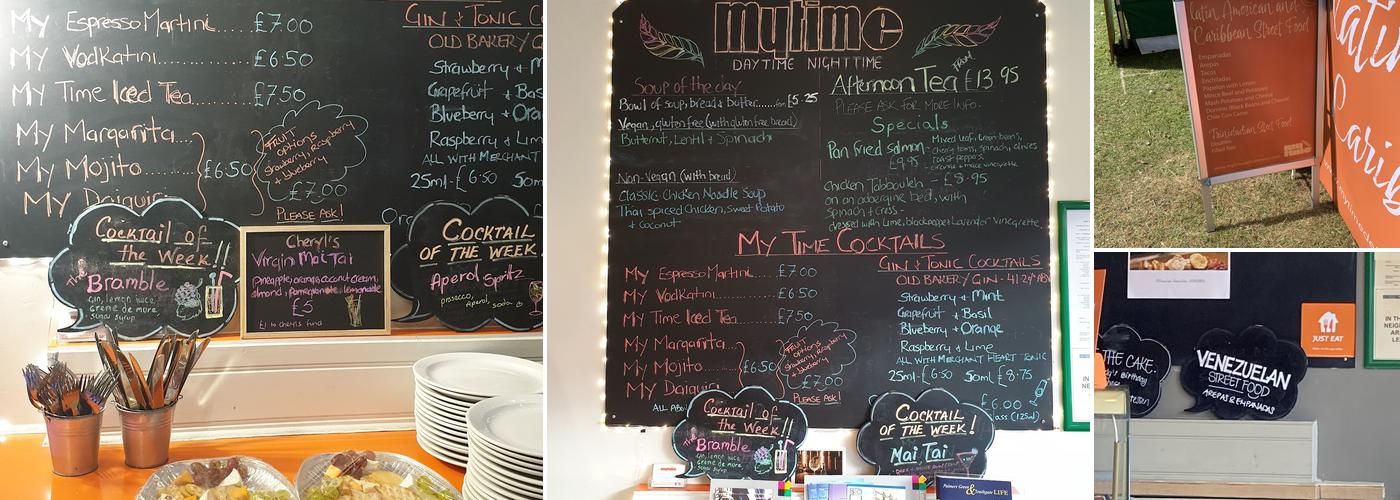 My Espresso Martini......£7.00
My Vodkatini..............£6.50
My Time Iced Tea........£7.50
My Margarita...
My Mojito.........
£6.50
My Daiquiri
FRUIT
options
Strawberry, Raspberry
£7.00
PLEASE ASK!
GIN & TONIC C
OLD BAKERY G
Strawberry + M
Grapefruit + Bas
Blueberry + Ora
Raspberry + Lim
ALL WITH MERCHANT
25ml-£6.50 50m
Cocktail of
the Week!!
The Bramble
Gin, lemon juice,
creme de mure,
sugar syrup
Cheryl's
Virgin Mai Tai
pineapple, orange, coconut cream,
almond, pomegranate, lemonade
£5
£1 to Cheryl's fund
COCKTAIL
OF THE WEEK
Aperol Spritz
prosecco,
Aperol, soda
mytime
DAYTIME NIGHTTIME
Soup of the day
Bowl of soup, bread & butter.......from £5.25
Vegan, gluten free (with gluten free bread)
Butternut, Lentil + Spinach
Non-Vegan (with bread)
Classic Chicken Noodle Soup
Thai spiced Chicken, sweet Potato
+ Coconut
Afternoon Tea FROM £13.95
PLEASE ASK FOR MORE INFO.
Specials
Pan fried salmon - Mixed leaf, Green beans,
Cherry toms, spinach, olives
£9.95 roast peppers
Chicken Tabbouleh - £8.95
on an aubergine bed, with
spinach + cress -
dressed with Lime, black pepper Lavender Vinegrette
MY TIME COCKTAILS
My Espresso Martini.....£7.00
My Vodkatini.............£6.50
My Time Iced Tea.......£7.50
My Margarita...
My Mojito........
£6.50
My Daiquiri
FRUIT
options
Strawberry, Raspberry
+ blueberry
£7.00
PLEASE ASK!
ALL
GIN & TONIC COCKTAILS
OLD BAKERY GIN - 41.2% ABV
Strawberry + Mint
Grapefruit + Basil
Blueberry + Orange
Raspberry + Lime
ALL WITH MERCHANT HEART TONIC
25ml-£6.50 50ml £8.75
£6.00
(125ml)
Cocktail of
the Week!!
The Bramble
Gin, lemon juice,
creme de mure,
sugar syrup
COCKTAIL
OF THE WEEK!
Mai Tai
Palmers Green & Southgate LIFE
Latin American and
Caribbean Street Food
Empanadas
Arepas
Tacos
Enchiladas
Papelon with Lemon
Mince Beef and Potatoes
Mash Potatoes and Cheese
Domino (Black Beans and Cheese)
Chile Con Carne
Trinidadian Street Food
Doubles
Filled Roti
THE CAKE.
Birthday
VENEZUELAN
STREET FOOD
AREPAS & EMPANADAS
JUST EAT
IN TH
NEIG
AR
LE